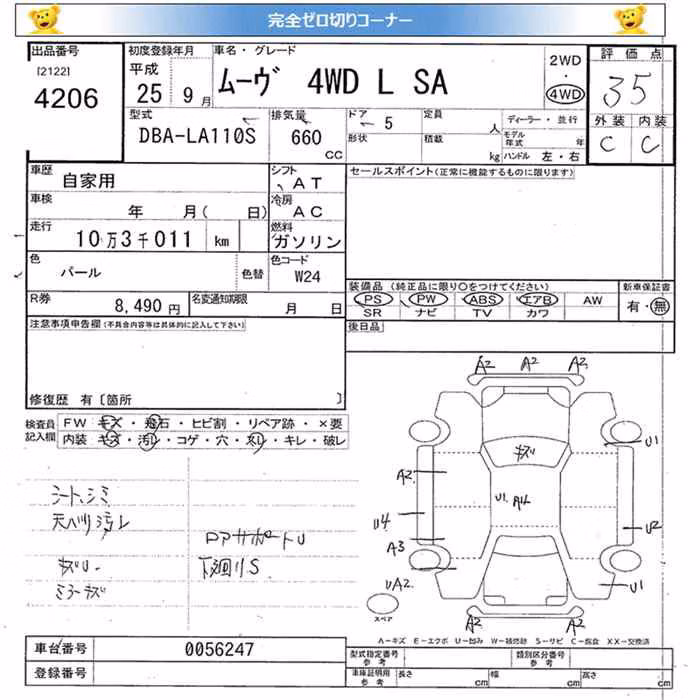 完全ゼロ切りコーナー
出品番号
[2122]
4206
初度登録年月
平成
25 9月
車名・グレード
ムーヴ 4WD L SA
2WD
・
4WD
評価点
35
外装 内装
C C
型式
DBA-LA110S
排気量
660
CC
ドア 5
形状
定員
人
積載
kg
ディーラー・並行
モデル年式 年
ハンドル 左・右
車歴
自家用
シフト
AT
車検
年 月( 日)
冷房
AC
走行
10万3千011 km
燃料
ガソリン
色
パール
色替
色コード
W24
R券
8,490円
名変通知期限
月 日
セールスポイント(正常に機能するものに限ります)
装備品(純正品に限り○をつけてください)
PS PW ABS エアB AW
SR ナビ TV カワ
新車保証書
有・無
後日品
注意事項申告欄(不具合内容等は具体的に記入して下さい)
修復歴 有〔箇所 〕
検査員
記入欄
FW キズ・飛石・ヒビ割・リペア跡・×要
内装 キズ・汚レ・コゲ・穴・ネレ・キレ・破レ
シート、シミ
天ヘリ汚レ
キズU.
ミラーキズ
ロアサポートU
下廻りS
A2 A2 A3
U1
キズ
A2
U1. A14
U4
U2
A3
UA2.
U1
スペア
A2 A2
A-キズ E-エクボ U-凹み W-補修跡 S-サビ C-腐食 XX-交換済
車台番号
0056247
登録番号
型式指定番号
参考
類別区分番号
参考
車庫証明用
参考
長さ cm
幅 cm
高さ cm